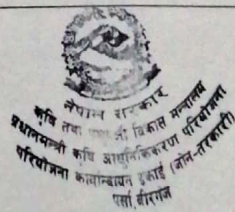 नेपाल सरकार
कृषि तथा पशुपन्छी विकास मन्त्रालय
प्रधानमन्त्री कृषि आधुनिकिकरण परियोजना
परियोजना कार्यान्वयन इकाई (जोन-तरकारी)
पर्सा, वीरगंज